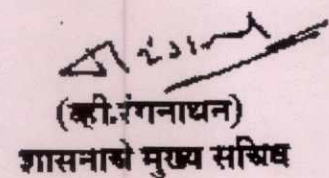 (व्ही.रंगनाथन)
शासनाचे मुख्य सचिव